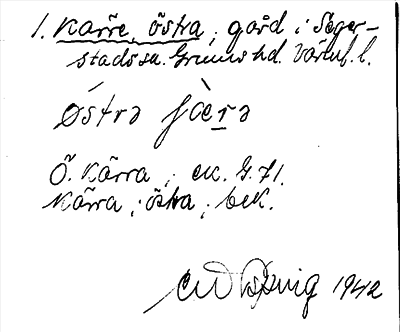 1. Kärre, östra, gård i Seger-
stads sn. Grums hd. Värml. l.
östrə ɟæ̀rə
Ö. Kärra, ek. G. 71.
Kärra, östra, bek.
1942